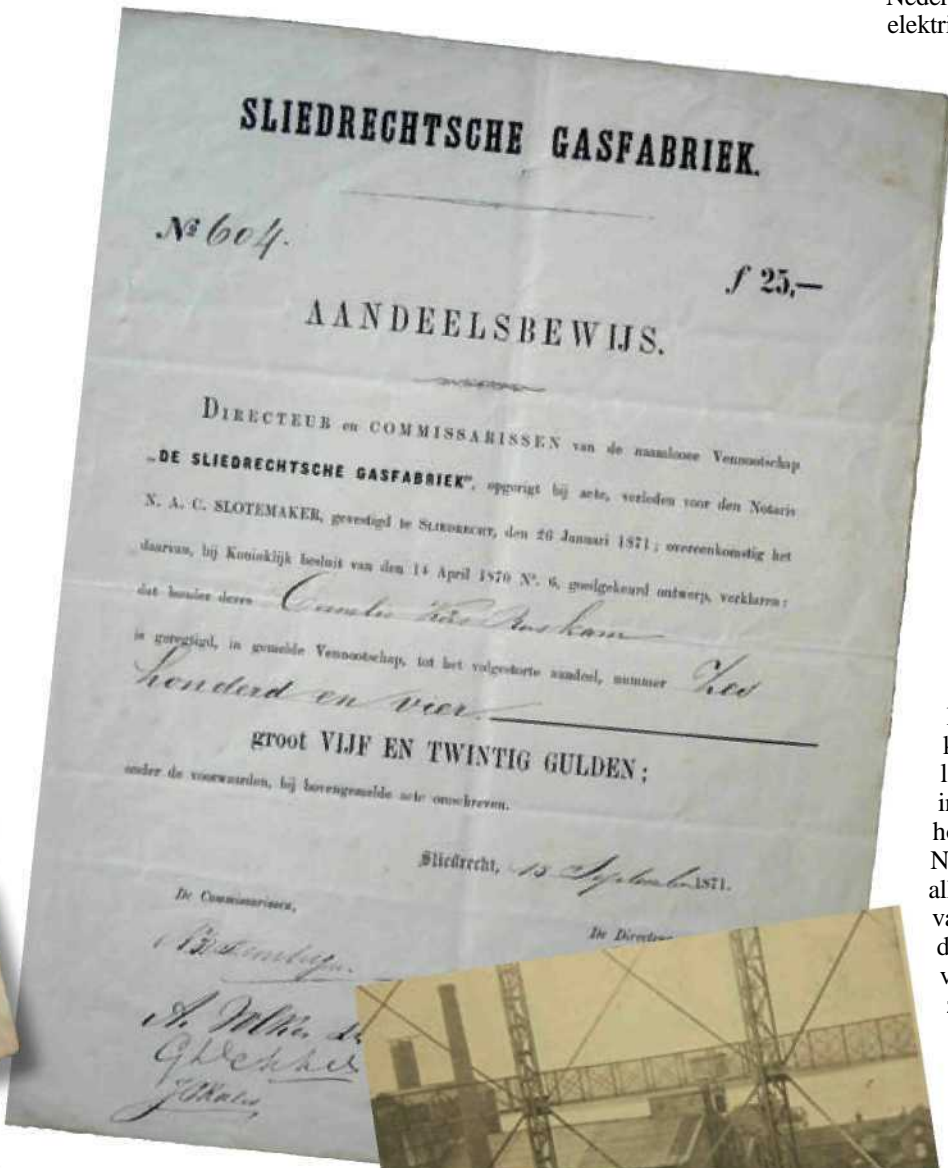 elektri
SLIEDRECHTSCHE GASFABRIEK.
№ 604.
f 25,—
AANDEELSBEWIJS.
DIRECTEUR en COMMISSARISSEN van de naamlooze Vennootschap
„DE SLIEDRECHTSCHE GASFABRIEK", opgerigt bij acte, verleden voor den Notaris
N. A. C. SLOTEMAKER, gevestigd te SLIEDRECHT, den 26 Januari 1871; overeenkomstig het
daarvan, bij Koninklijk besluit van den 14 April 1870 N°. 6, goedgekeurd ontwerp, verklaren:
dat houder dezes
is geregtigd, in gemelde Vennootschap, tot het volgestorte aandeel, nummer Zes
honderd en vier.
groot VIJF EN TWINTIG GULDEN;
onder de voorwaarden, bij bovengemelde acte omschreven.
Sliedrecht, 15 September 1871.
De Commissarissen,
De Directeu
A. Volker